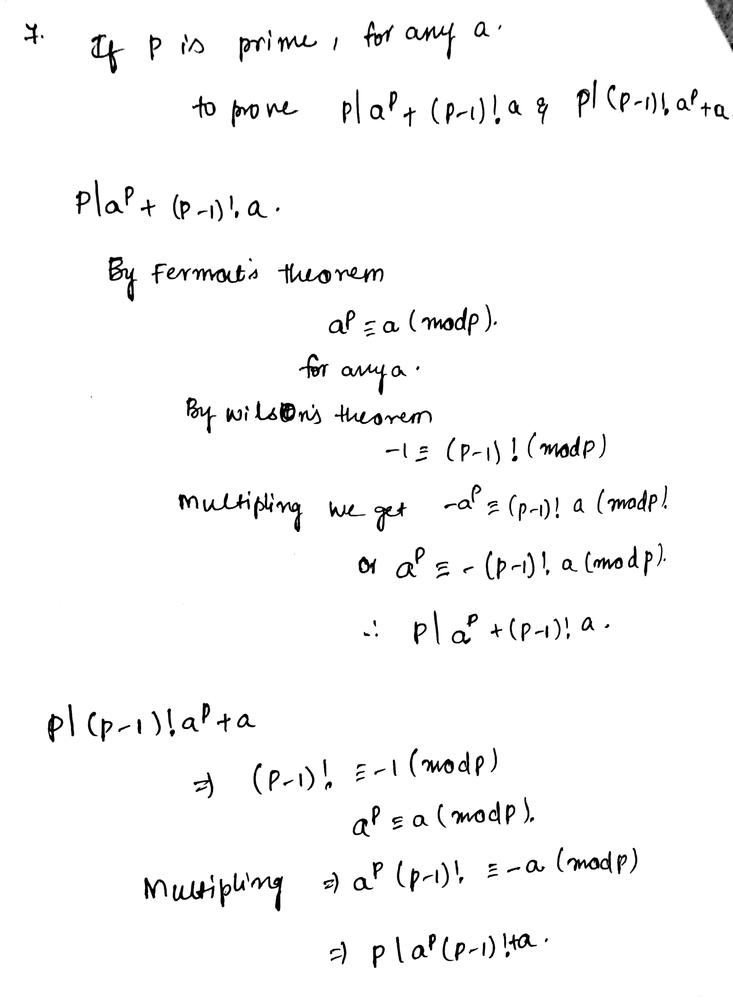 7. If p is prime, for any a.
to prove p|aᵖ + (p-1)! a & p|(p-1)! aᵖ+a
p|aᵖ + (p-1)! a.
By Fermat's theorem
aᵖ ≡ a (modp).
for any a.
By wilson's theorem
-1 ≡ (p-1)! (modp)
Multipling we get -aᵖ ≡ (p-1)! a (modp)
or aᵖ ≡ - (p-1)! a (modp).
∴ p|aᵖ + (p-1)! a.
p|(p-1)! aᵖ+a
⇒ (p-1)! ≡ -1 (modp)
aᵖ ≡ a (modp).
Multipling ⇒ aᵖ (p-1)! ≡ -a (modp)
⇒ p|aᵖ(p-1)!+a.